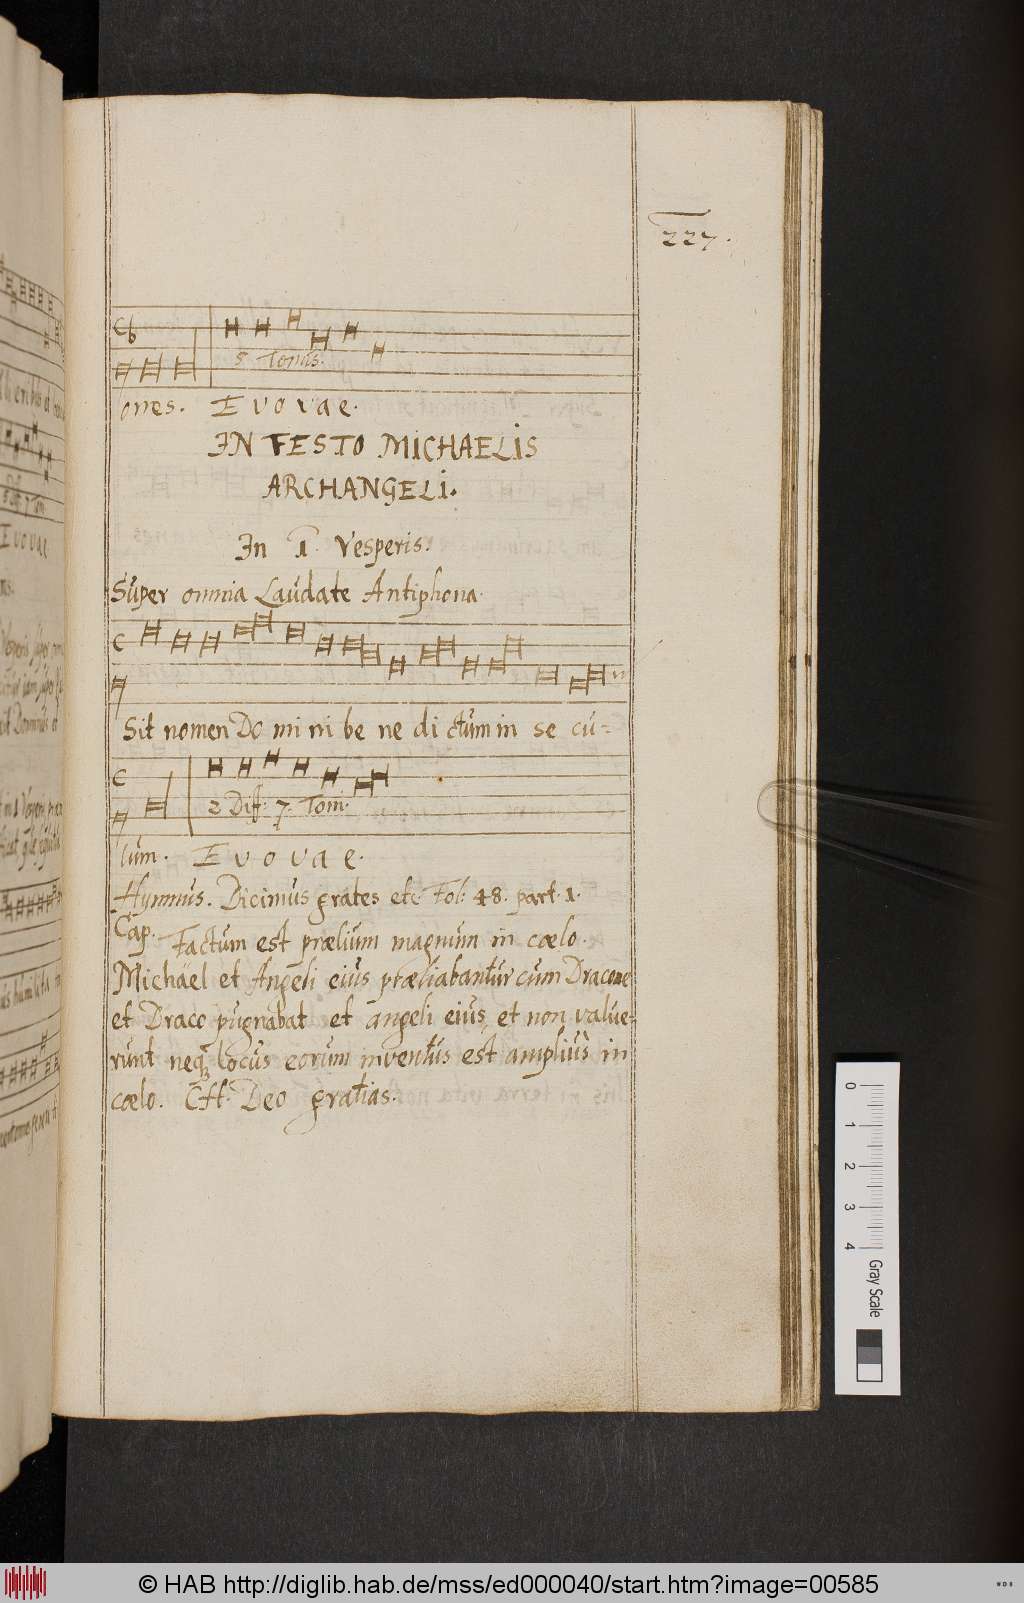 227.
8 Tonus.
ones. E v o v a e.
IN FESTO MICHAELIS
ARCHANGELI.
In 1. Vesperis.
Super omnia Laudate Antiphona.
Sit nomen Do mi ni be ne di ctum in se cu-
2 Dif: 7. Toni.
lum. E v o v a e.
Hymnus. Dicimus grates etc. Fol: 48. part. 1.
Cap. Factum est prælium magnum in cœlo.
Michael et Angeli eius præliabantur cum Dracone
et Draco pugnabat et angeli eius, et non value-
runt neq3 locus eorum inventus est amplius in
cœlo. Deo gratias.
0 1 2 3 4 Gray Scale
© HAB http://diglib.hab.de/mss/ed000040/start.htm?image=00585